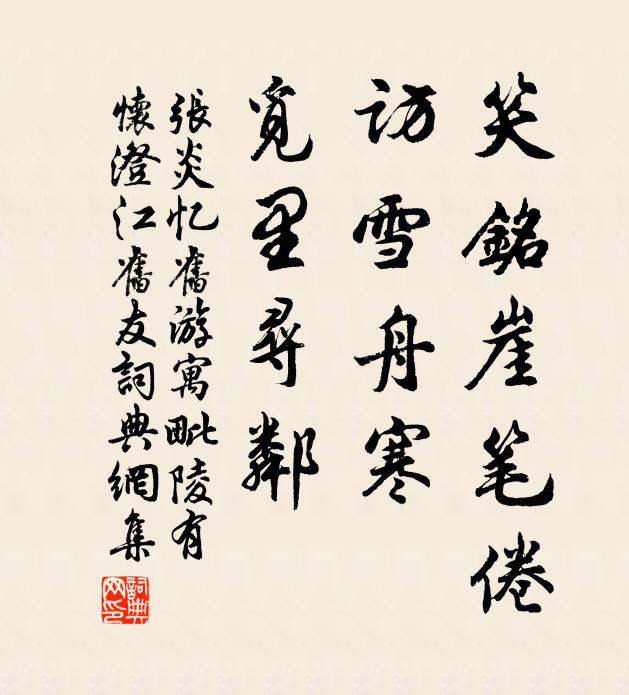 笑銘崖笔倦
訪雪舟寒
覓里尋鄰
張炎忆舊游寓毗陵有
懷澄江舊友詞典網集
詞典網印